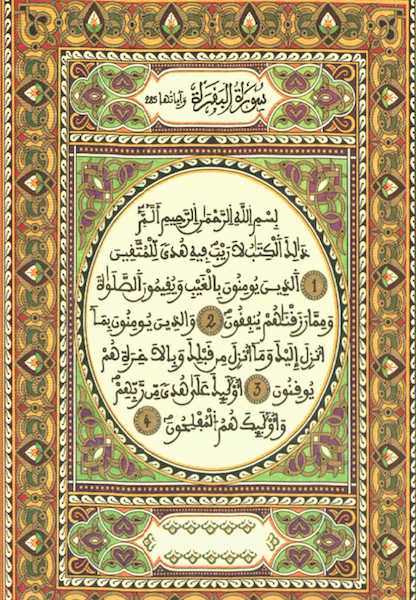 سورة البقرة وآياتها 285
بسم الله الرحمن الرحيم ألم
ذلك الكتاب لا ريب فيه هدى للمتقين
1 الذين يومنون بالغيب ويقيمون الصلوة
ومما رزقناهم ينفقون 2 والذين يومنون بما
أنزل إليك وما أنزل من قبلك وبالاخرة هم
يوقنون 3 أولئك على هدى من ربهم
وأولئك هم المفلحون 4